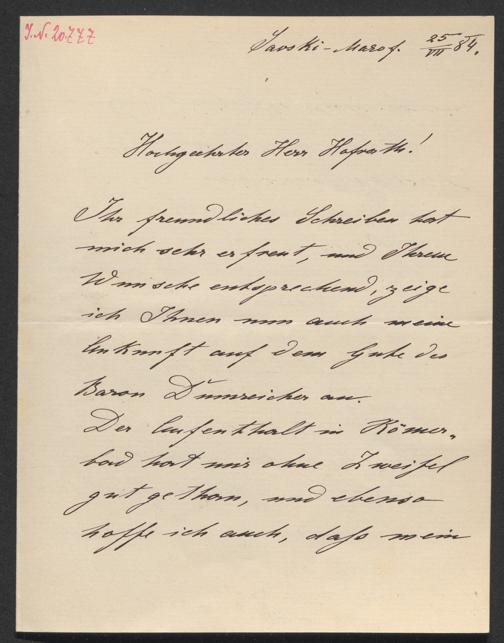 J.N. 20.777
Savski-Marof. 25/VII 84.
Hochgeehrter Herr Hofrath!
Ihr freundliches Schreiben hat
mich sehr erfreut, und Ihrem
Wunsche entsprechend, zeige
ich Ihnen nun auch meine
Ankunft auf dem Gute des
Baron Dumreicher an.
Der Aufenthalt in Römer„
bad hat mir ohne Zweifel
gut gethan, und ebenso
hoffe ich auch, daß mein